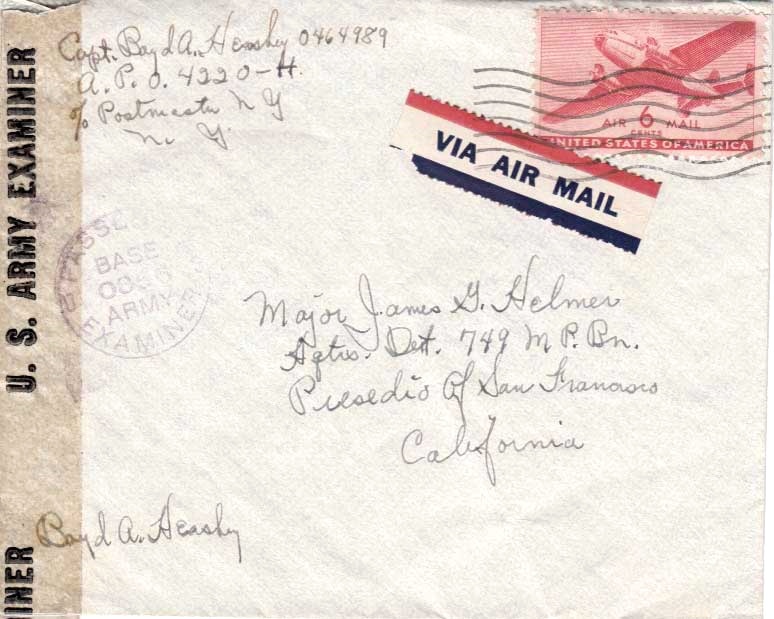 Capt. Boyd A. Hershey 0464989
A.P.O. 4220-H.
c/o Postmaster N Y
N. Y.
AIR 6 MAIL
CENTS
UNITED STATES OF AMERICA
VIA AIR MAIL
U. S. ARMY EXAMINER
PASSED
BASE
ARMY
EXAMINER
Major James G. Helmer
Hqtrs. Det. 749 M P. Bn.
Presedio Of San Francisco
California
Boyd A. Hershey
INER